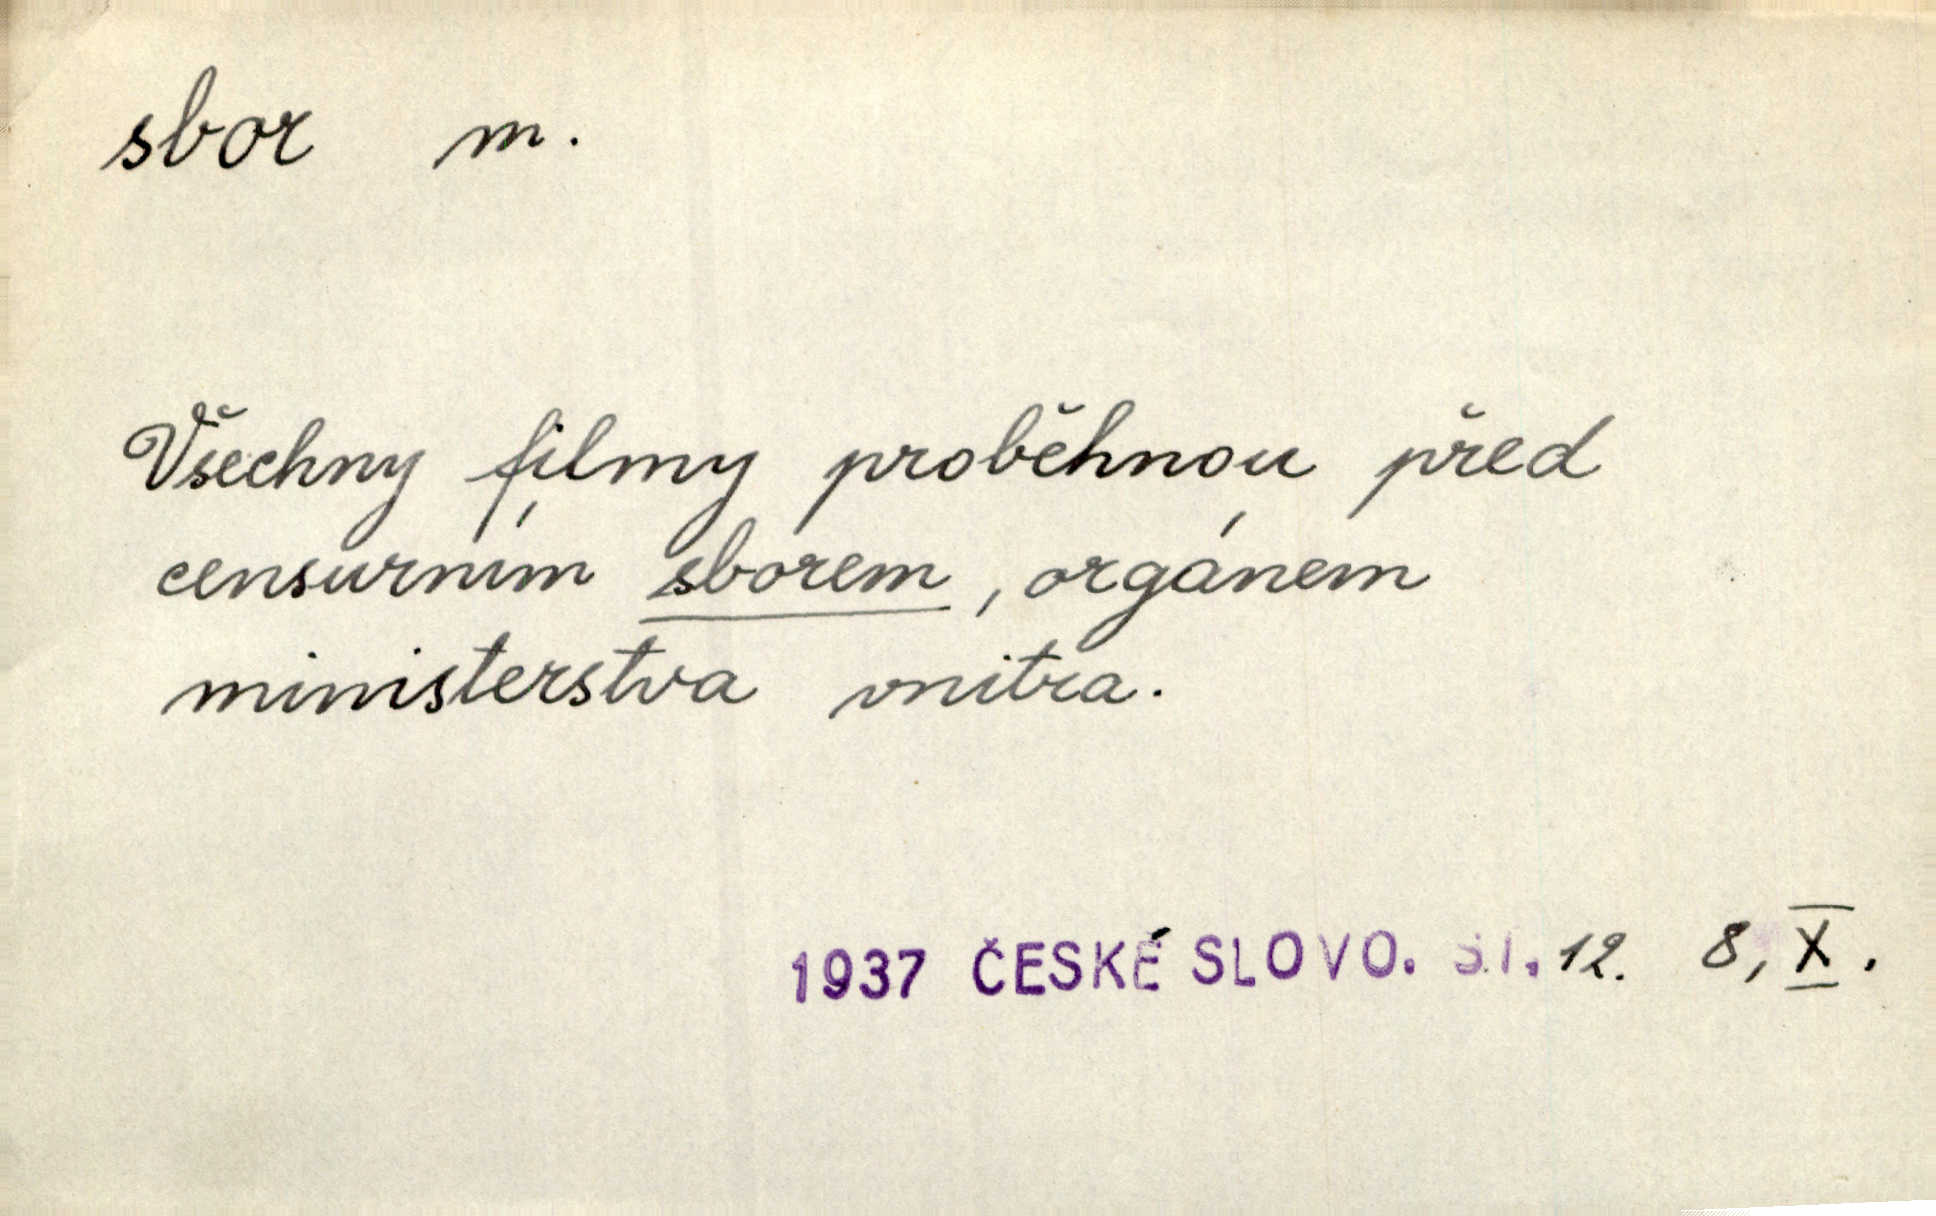 sbor m.
Všechny filmy proběhnou před
censurním sborem, orgánem
ministerstva vnitra.
1937 ČESKÉ SLOVO. S1. 12. 8, X.